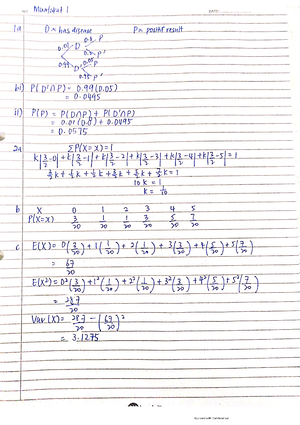 1a D = has disease P = positif result
0.01 D 0.8 P
0.2 P'
0.99 D' 0.05 P
0.95 P'
bi) P(D'∩P) = 0.99(0.05)
= 0.0495
ii) P(P) = P(D∩P) + P(D'∩P)
= 0.01(0.8) + 0.0495
= 0.0575
2a ΣP(X=x) = 1
k|3/2-0| + k|3/2-1| + k|3/2-2| + k|3/2-3| + k|3/2-4| + k|3/2-5| = 1
3/2k + 1/2k + 1/2k + 3/2k + 5/2k + 7/2k = 1
10k = 1
k = 1/10
b X 0 1 2 3 4 5
P(X=x) 3/20 1/20 1/20 3/20 5/20 7/20
c E(X) = 0(3/20) + 1(1/20) + 2(1/20) + 3(3/20) + 4(5/20) + 5(7/20)
= 67/20
E(X²) = 0²(3/20) + 1²(1/20) + 2²(1/20) + 3²(3/20) + 4²(5/20) + 5²(7/20)
= 287/20
Var(X) = 287/20 - (67/20)²
= 3.1275